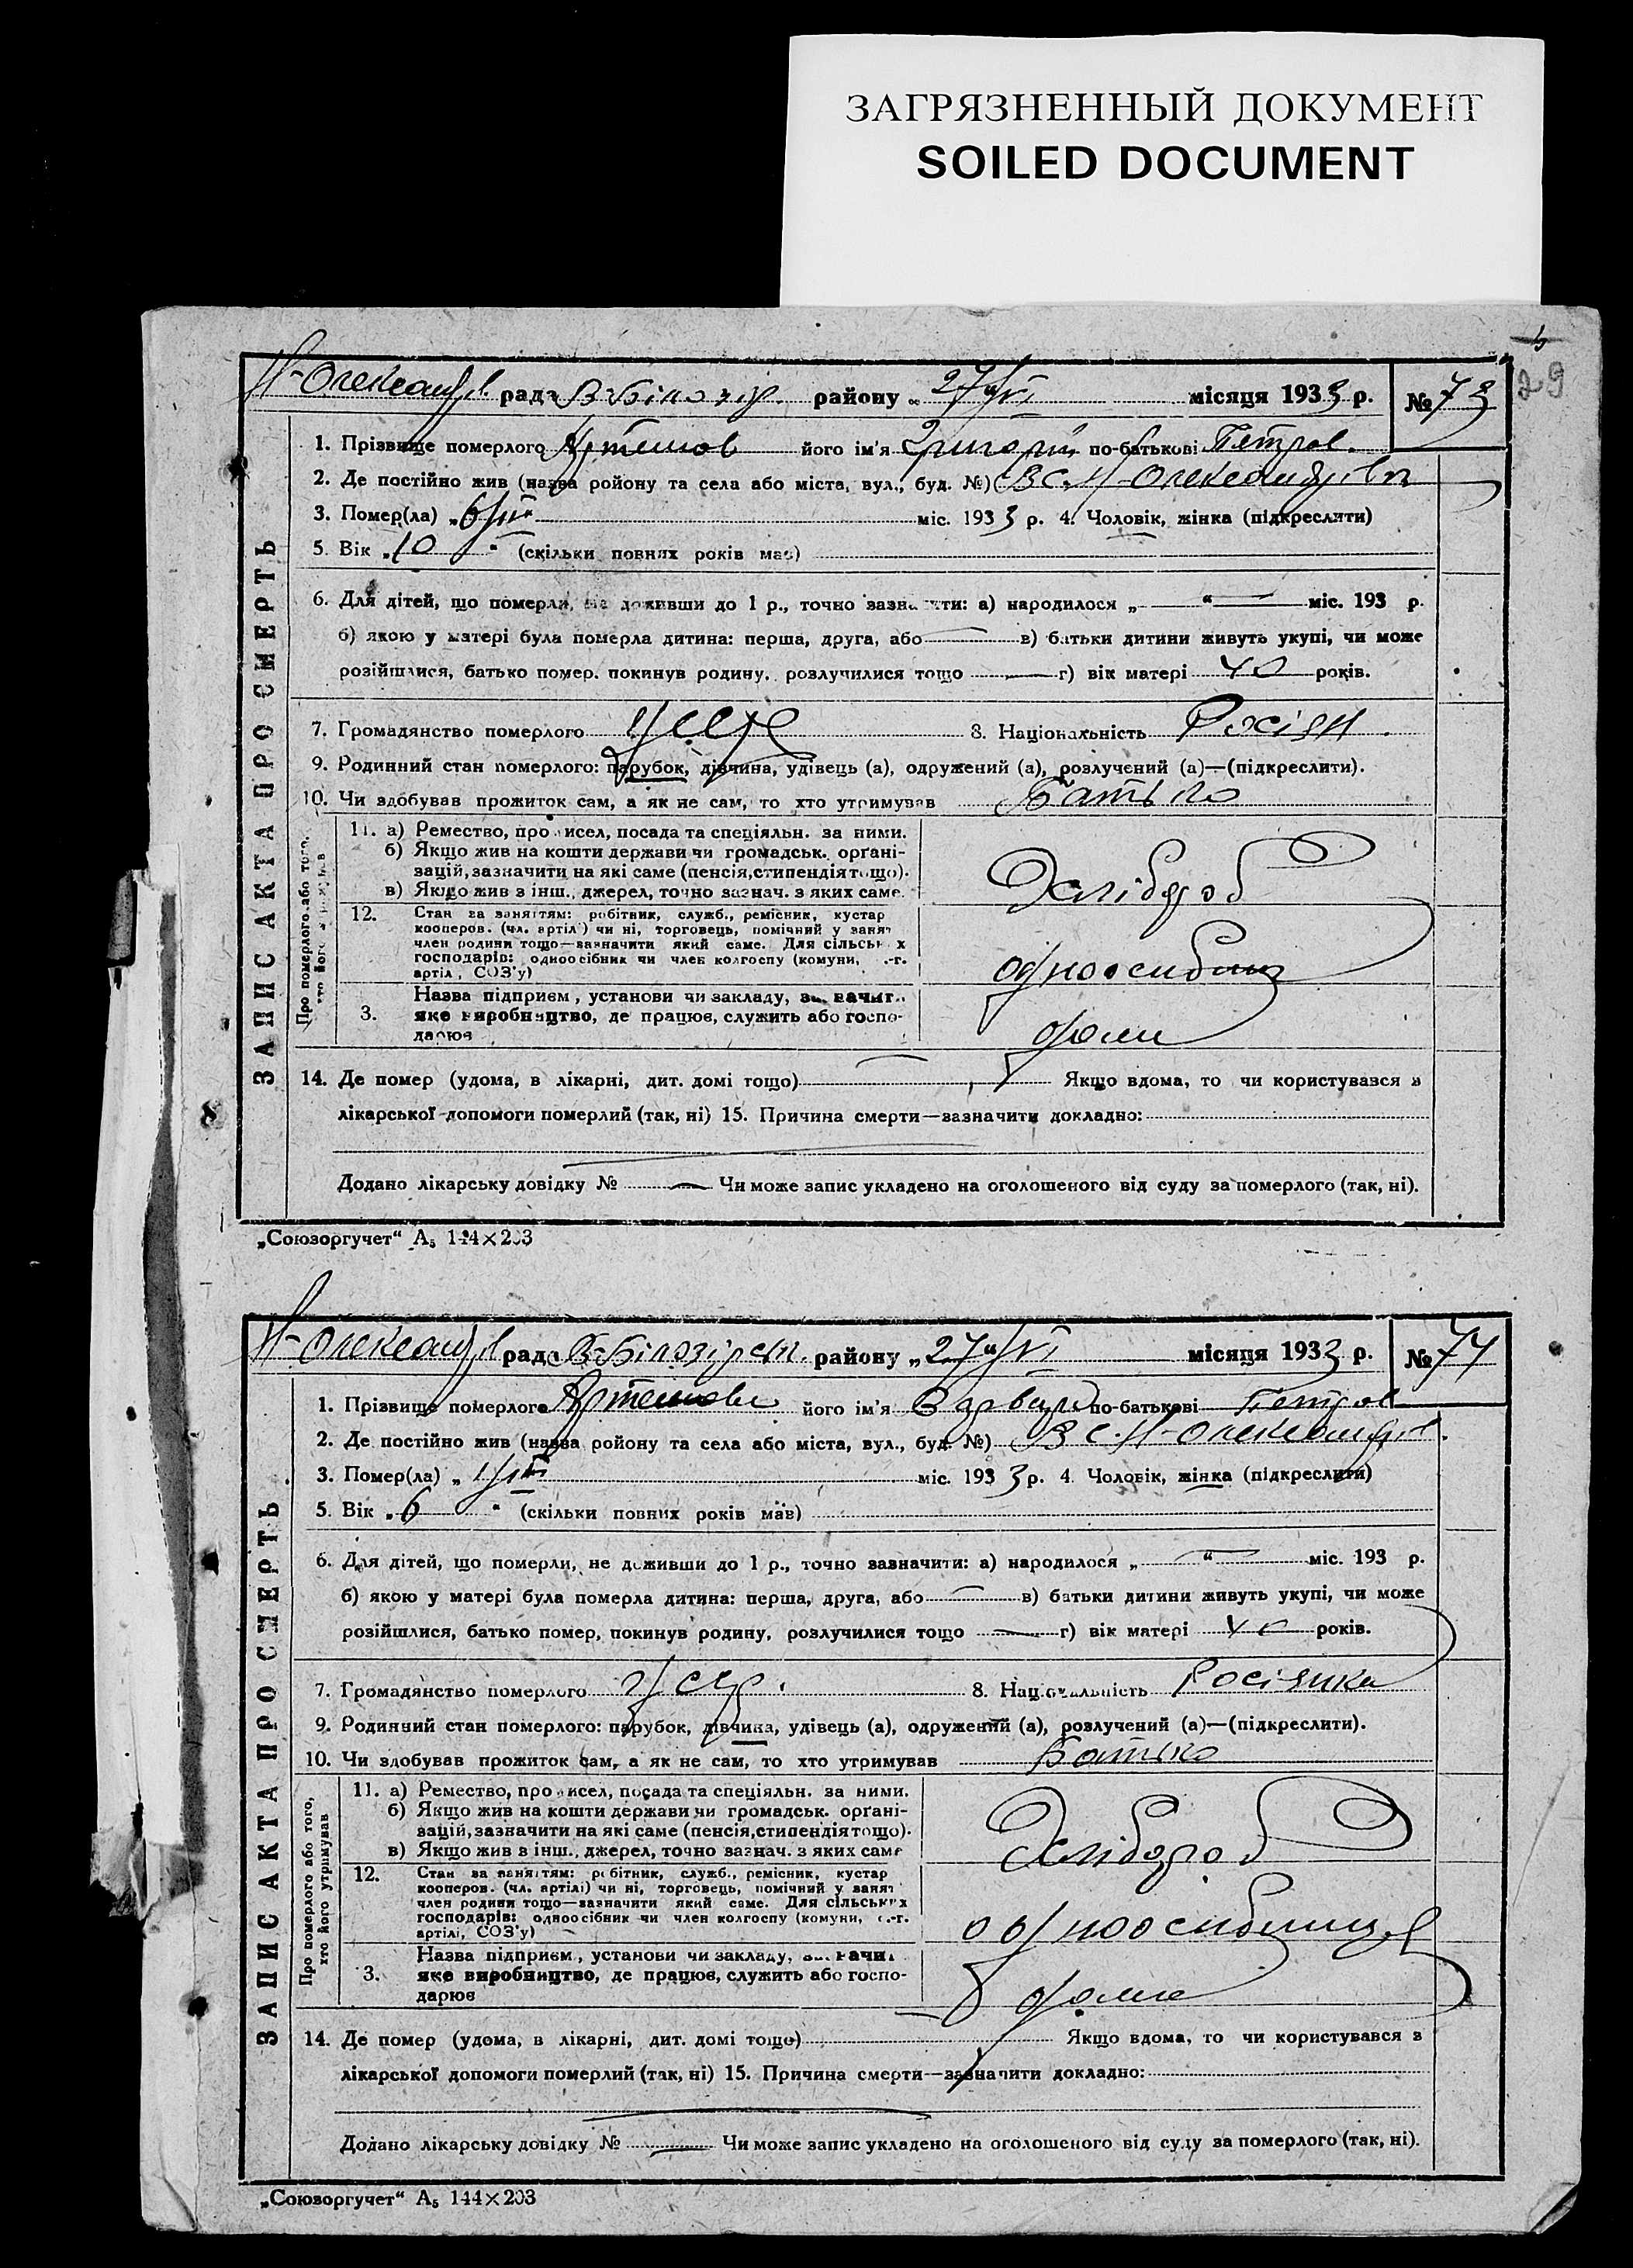 ЗАГРЯЗНЕННЫЙ ДОКУМЕНТ
SOILED DOCUMENT
29
Н-Олександрів. рада В-Білозір. району „27"/VI місяця 1933 р. № 73
1. Прізвище померлого Артемов його ім'я Григорій по-батькові Петров.
2. Де постійно жив (назва ройону та села або міста, вул., буд. №) В С. Н-Олександрівка
3. Помер(ла) „6/III" міс. 1933 р. 4. Чоловік, жінка (підкреслити)
5. Вік „10" (скільки повних років мав)
6. Для дітей, що померли, не доживши до 1 р., точно зазначити: а) народилося „ — " — міс. 193 р.
б) якою у матері була померла дитина: перша, друга, або — в) батьки дитини живуть укупі, чи може
розійшлися, батько помер, покинув родину, розлучилися тощо — г) вік матері 40 років.
7. Громадянство померлого УССР 8. Національність Росіян.
9. Родинний стан померлого: парубок, дівчина, удівець (а), одружений (а), розлучений (а)—(підкреслити).
10. Чи здобував прожиток сам, а як не сам, то хто утримував Батько
ЗАПИС АКТА ПРО СМЕРТЬ
Про померлого або того,
хто його утримував
11. а) Ремество, промисел, посада та спеціяльн. за ними.
б) Якщо жив на кошти держави чи громадськ. орґані-
зацій, зазначити на які саме (пенсія, стипендія тощо).
в) Якщо жив з інш., джерел, точно зазнач. з яких саме.
Хлібороб
12. Стан за заняттям: робітник, служб., ремісник, кустар
кооперов. (чл. артіл) чи ні, торговець, помічний у занят
член родини тощо—зазначити який саме. Для сільських
господарів: одноосібник чи член колгоспу (комуни, с.-г.
артіл, СОЗ'у)
одноосибник
3. Назва підприєм, установи чи закладу, зазначит.
яке виробництво, де працює, служить або госпо-
дарює
дома
14. Де помер (удома, в лікарні, дит. домі тощо) Якщо вдома, то чи користувався з
лікарської допомоги померлий (так, ні) 15. Причина смерти—зазначити докладно:
Додано лікарську довідку № — Чи може запис укладено на оголошеного від суду за померлого (так, ні).
„Союзоргучет" А₅ 144×203
Н-Олександрів рада В-Білозірськ. району „27"/VI місяця 1933 р. № 74
1. Прізвище померлого Артемова його ім'я Варвара по-батькові Петров
2. Де постійно жив (назва ройону та села або міста, вул., буд. №) В С. Н-Олександрів.
3. Помер(ла) „ міс. 1933 р. 4. Чоловік, жінка (підкреслити)
5. Вік „6" (скільки повних років мав)
6. Для дітей, що померли, не доживши до 1 р., точно зазначити: а) народилося „ — " — міс. 193 р.
б) якою у матері була померла дитина: перша, друга, або — в) батьки дитини живуть укупі, чи може
розійшлися, батько помер, покинув родину, розлучилися тощо — г) вік матері 40 років.
7. Громадянство померлого УССР. 8. Національність Росіянка
9. Родинний стан померлого: парубок, дівчина, удівець (а), одружений (а), розлучений (а)—(підкреслити).
10. Чи здобував прожиток сам, а як не сам, то хто утримував Батько
ЗАПИС АКТА ПРО СМЕРТЬ
Про померлого або того,
хто його утримував
11. а) Ремество, промисел, посада та спеціяльн. за ними.
б) Якщо жив на кошти держави чи громадськ. орґані-
зацій, зазначити на які саме (пенсія, стипендія тощо).
в) Якщо жив в інш., джерел, точно зазнач. з яких саме
Хлібороб
12. Стан за заняттям: робітник, служб., ремісник, кустар
кооперов. (чл. артілі) чи ні, торговець, помічний у занят
член родини тощо—зазначити який саме. Для сільських
господарів: одноосібник чи член колгоспу (комуни, с.-г.
артілі, СОЗ'у)
одноосибниця
3. Назва підприєм, установи чи закладу, зазначит
яке виробництво, де працює, служить або госпо-
дарює
дома
14. Де помер (удома, в лікарні, дит. домі тощо) Якщо вдома, то чи користувався з
лікарської допомоги померлий (так, ні) 15. Причина смерти—зазначити докладно:
Додано лікарську довідку № — Чи може запис укладено на оголошеного від суду за померлого (так, ні).
„Союзоргучет" А₅ 144×203